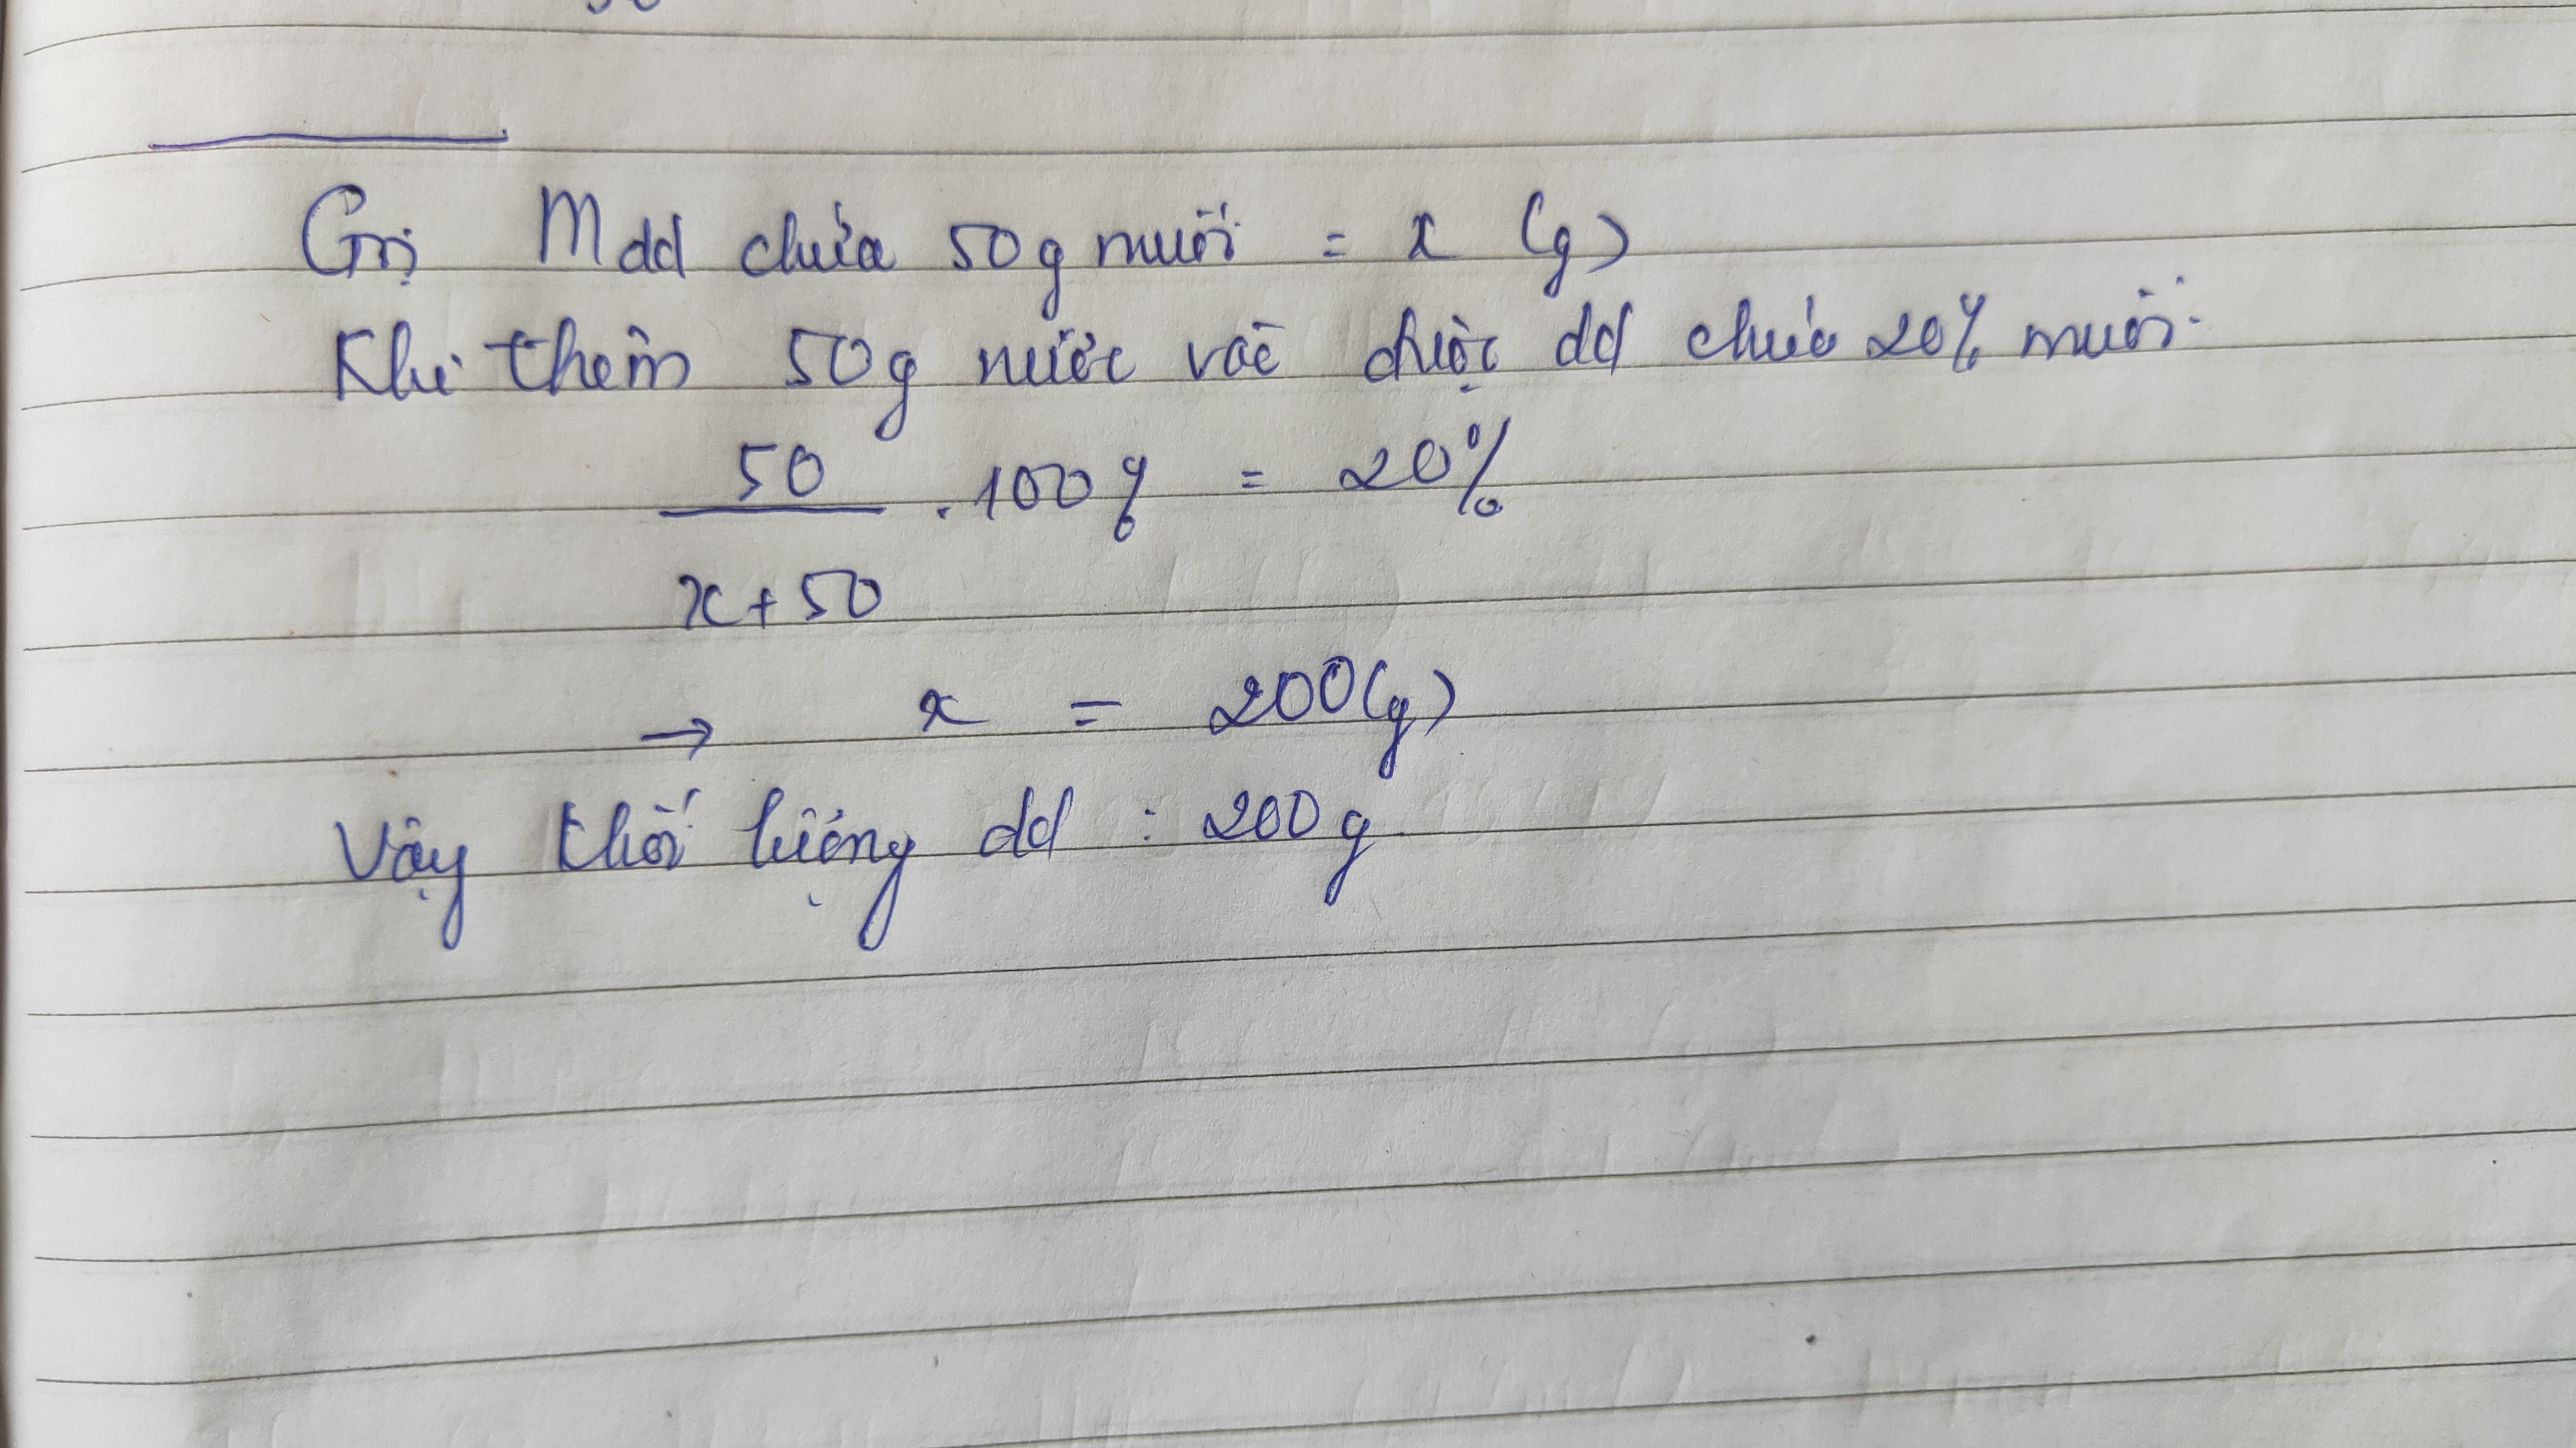 Gọi Mdd chứa 50g muối = x (g)
Khi thêm 50g nước vào được dd chứa 20% muối.
50
. 100% = 20%
x + 50
→ x = 200(g)
Vậy khối lượng dd : 200g